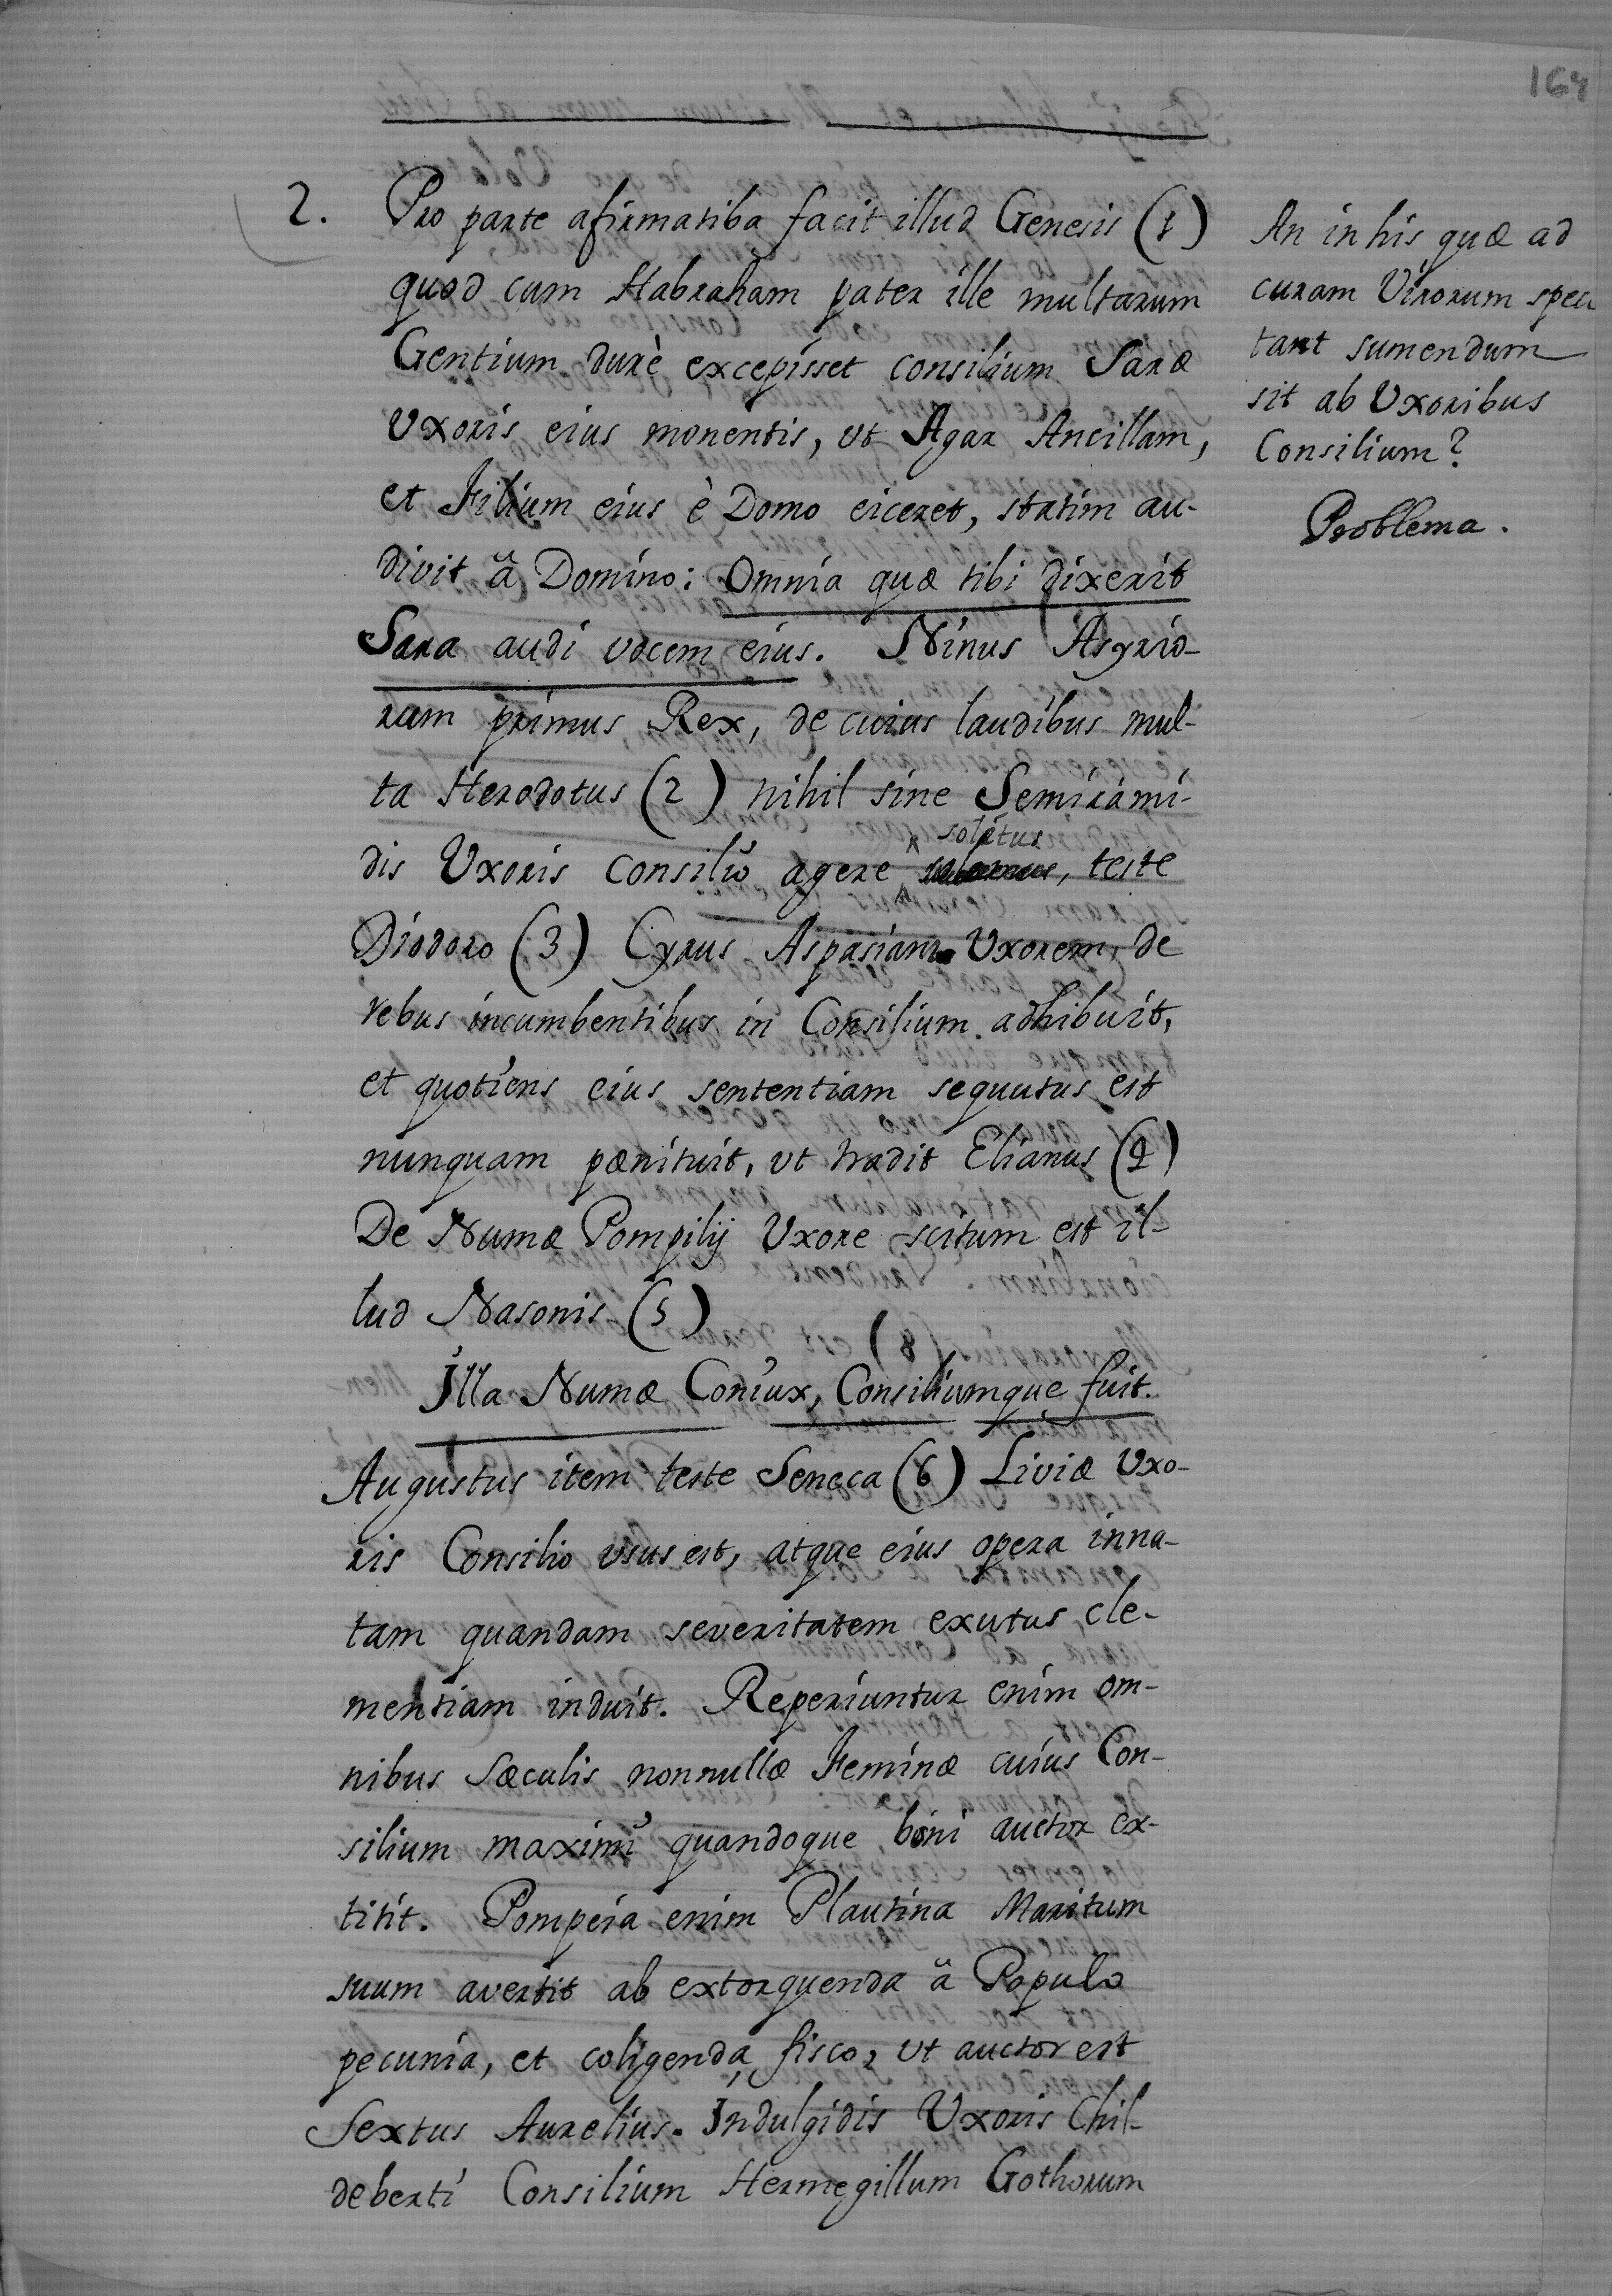 164
2. Pro parte afirmatiba facit illud Genesis (1)
quod cum Habraham pater ille multarum
Gentium durè excepisset consilium Saræ
Uxoris eius monentis, ut Agar Ancillam,
et Filium eius è Domo eiceret, statim au-
divit ã Domino: Omnia quæ tibi dixerit
Sara audi vocem eius. Ninus Asyrio-
rum primus Rex, de cuius laudibus mul-
ta Herodotus (2) nihil sine Semirami-
solitus
dis Uxoris consilio agere, teste
Diodoro (3) Cyrus Aspasiam Uxorem, de
rebus incumbentibus in Consilium adhibuit,
et quotiens eius sententiam sequutus est
nunquam pœnituit, ut tradit Elianus (4)
De Numæ Pompilij Uxore scitum est il-
lud Nasonis (5)
Illa Numæ Coniux, Consiliumque fuit.
Augustus item teste Seneca (6) Liviæ Uxo-
ris Consilio usus est, atque eius opera inna-
tam quandam severitatem exutus, cle-
mentiam induit. Reperiuntur enim om-
nibus sæculis nonnullæ Feminæ cuius Con-
silium maximi quandoque boni auctor ex-
titit. Pompeia enim Plautina Maritum
suum avertit ab extorquenda ã Populo
pecunia, et coligenda fisco, ut auctor est
Sextus Aurelius. Indulgidis Uxoris Chil-
deberti Consilium Hermegillum Gothorum
An in his quæ ad
curam Virorum spec
tant sumendum
sit ab Uxoribus
Consilium?
Problema.